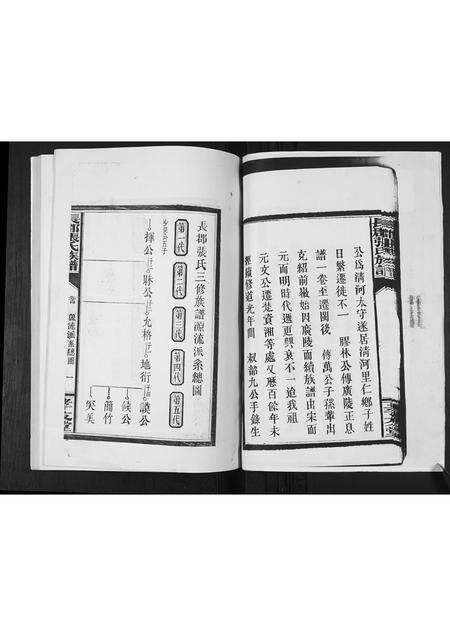 公爲清河太守遂居清河里仁鄉子姓
日繁遷徙不一 膠林公傳廣陵正息
譜一卷至遷閩後 傳萬公子孫華出
克紹前徽始因廣陵而續族譜由宋而
元而明時代迭更興衰不一迨我祖
元文公遷楚賓湘等處又曆百餘年未
修道光年間 叔韶九公手錄生
長郡張氏三修族譜源流派系總圖
第一代
第二代
第三代
第四代
第五代
揮公
昧公
允格
地行
謨公
候公
簡竹
奂美
長郡張氏族譜
源流派系總圖 一